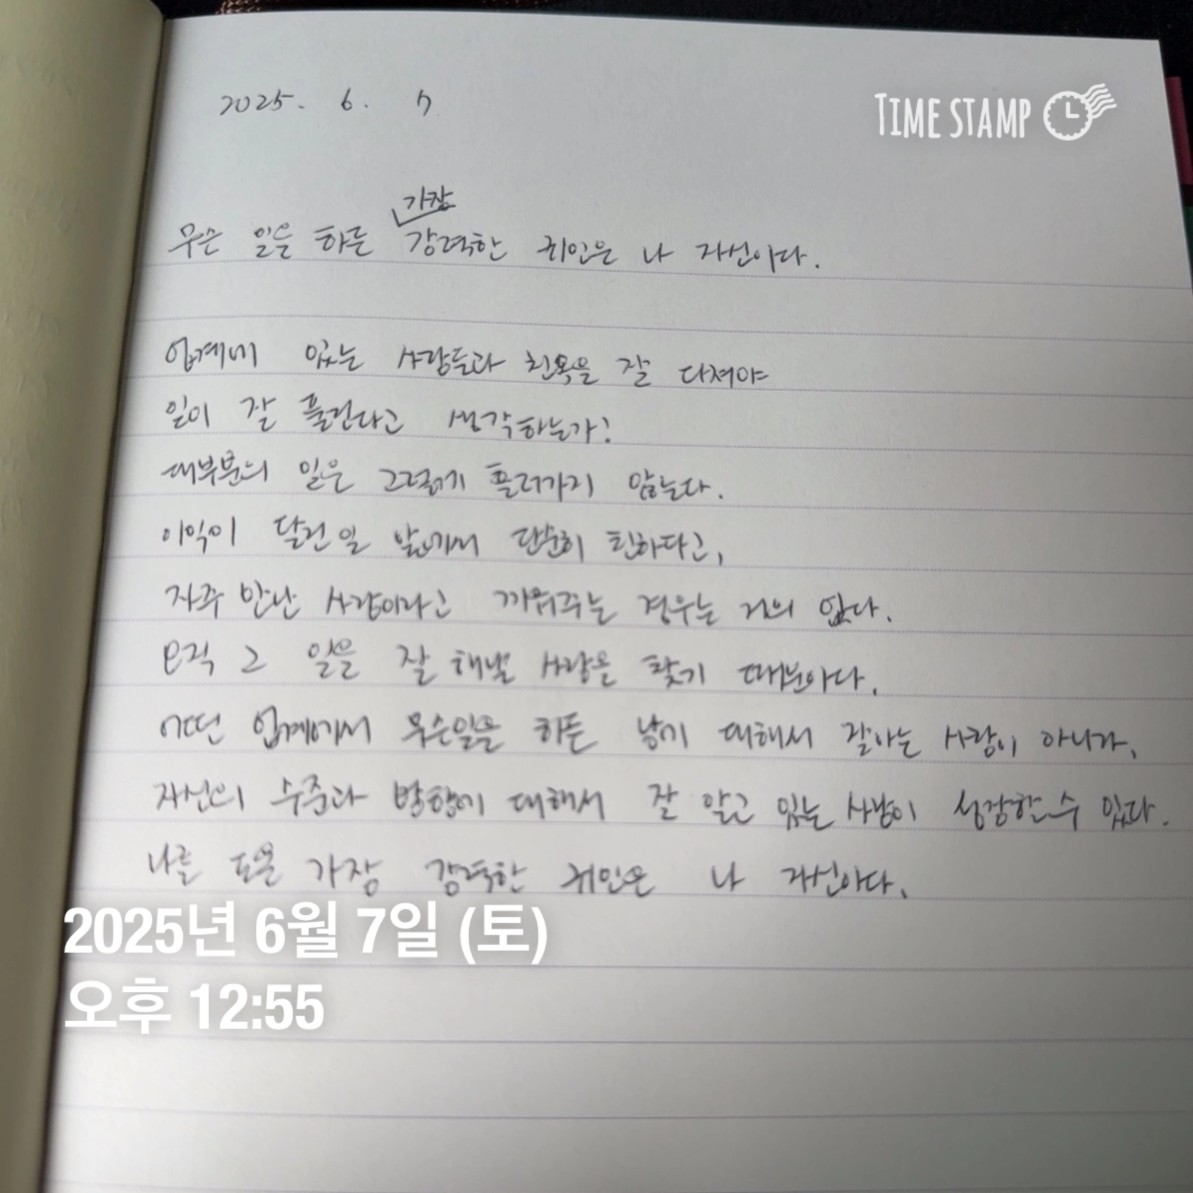 2025. 6. 7
TIME STAMP
가장
무슨 일을 하든 강력한 귀인은 나 자신이다.
업계에 있는 사람들과 친목을 잘 다져야
일이 잘 풀린다고 생각하는가?
대부분의 일은 그렇게 흘러가지 않는다.
이익이 달린일 앞에서 단순히 친하다고,
자주 만난 사람이라고 끼워주는 경우는 거의 없다.
오직 그 일을 잘 해낼 사람을 찾기 때문이다.
어떤 업계에서 무슨일을 하든 남에 대해서 잘아는 사람이 아니라,
자신의 수준과 방향에 대해서 잘 알고 있는 사람이 성장할 수 있다.
나를 도울 가장 강력한 귀인은 나 자신이다.
2025년 6월 7일 (토)
오후 12:55